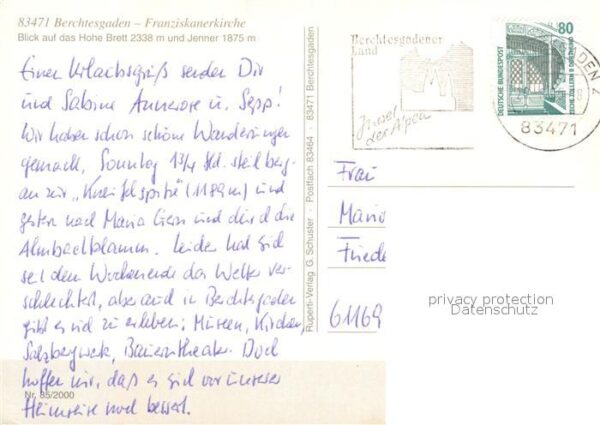 83471 Berchtesgaden – Franziskanerkirche
Blick auf das Hohe Brett 2338 m und Jenner 1875 m
Einen Urlaubsgruß senden Dir
und Sabine Annerose u. Sepp!
Wir haben schon schöne Wanderungen
gemacht, Sonntag 1 3/4 Std. steil berg-
an zur „Kneifelspitze" (1189m) und
gestern nach Maria Gern und durch die
Almbachklamm. Leider hat sich
seit dem Wochenende das Wetter ver-
schlechtert, aber auch in Berchtesgaden
gibt es viel zu erleben: Museen, Kirchen,
Salzbergwerk, Bauerntheater. Doch
hoffen wir, daß es sich vor unserer
Heimreise noch bessert.
Nr. 85/2000
Ruperti-Verlag G. Schuster · Postfach 83464 · 83471 Berchtesgaden
Berchtesgadener
Land
Insel
der Alpen
80
DEUTSCHE BUNDESPOST
ZECHE ZOLLERN II DORTMUND
83471
Frau
Mario
Friede
61169
privacy protection
Datenschutz